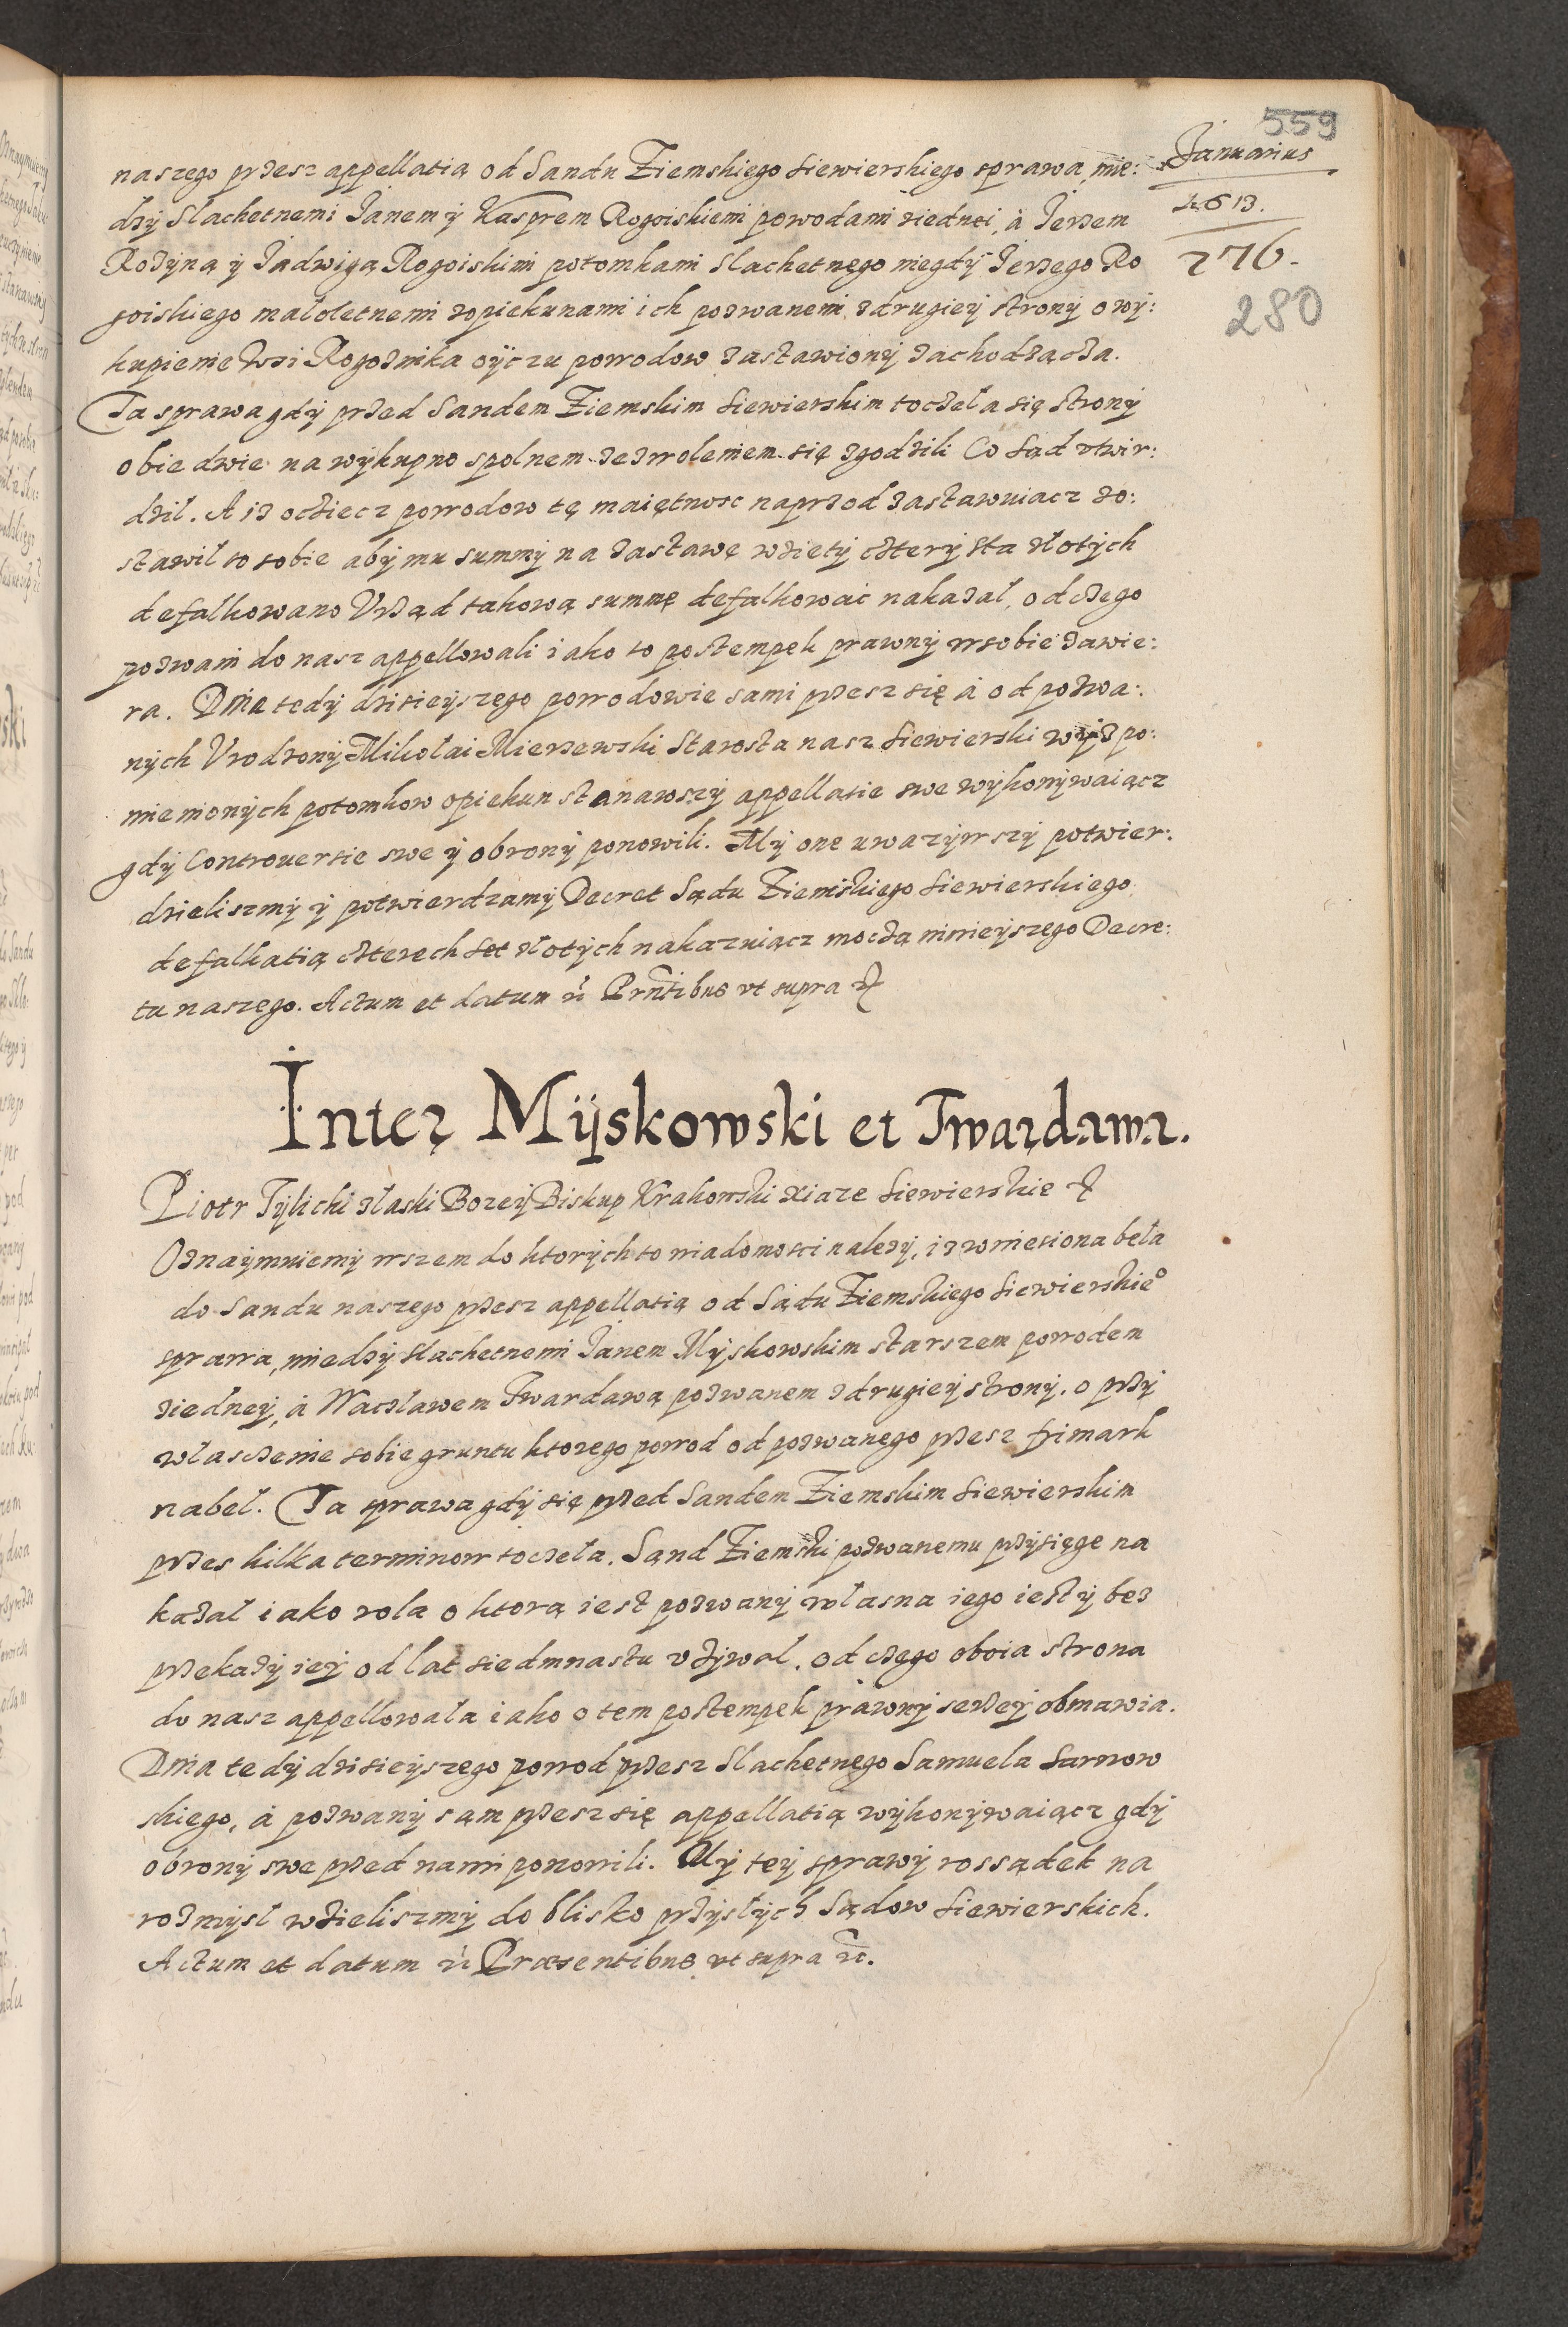 559
Januarius
1613.
276.
280
naszego przesz appellatią od Sandu Ziemskiego Siewierskiego sprawa, mie:
dzy Slachetnemi Janem ÿ Kasprem Rogoiskiemi powodami ziednei, à Jerzem
Rozÿną ÿ Jadwigą Rogoiskimi potomkami Slachetnego niegdÿ Jerzego Ro
goiskiego małoletnemi zopiekunami ich pozwanemi zdrugieÿ stronÿ o wÿ:
kupienie Wsi Rogoznika oÿczu powodow zastawionÿ zachodząca.
Ta sprawa gdÿ przed Sandem Ziemskim Siewierskim toczeła się stronÿ
obiedwie na wÿkupno spolnem zezwoleniem się zgodzili Co Sąd vtwir:
dził. A iż ocziecz powodow tę maiętnosc naprzod zastawuiacz zo:
stawił to sobie abÿ mu summÿ na zastawę wzietÿ czterÿ sta złotÿch
defalkowano Vrząd takową summę defalkowac nakazał, od czego
pozwani do nasz appellowali iako to postempek prawnÿ w sobie zawie:
ra. Dnia tedÿ dzisieÿszego powodowie sami przesz się à od pozwa:
nÿch Vrodzonÿ Mikołai Mierzewski Starosta nasz Siewierski wÿż po:
mienionÿch potomkow opiekun stanawszÿ appellatie swe wÿkonÿwaiącz
gdÿ Controuersie swe ÿ obronÿ ponowili. Mÿ one uwazÿwszÿ potwier:
dzieliszmÿ ÿ potwierdzamÿ Decret Sądu Ziemskiego Siewierskiego
defalkatią czterech set złotÿch nakazuiącz moczą ninieÿszego Decre:
tu naszego. Actum et datum ut Prntibus vt supra etc
Inter Mÿskowski et Twardawa.
Piotr Tÿlicki złaski BozeÿBiskup Krakowski xiaze Siewierskie etc
Oznaÿmuiemÿ wszem do ktorÿch to wiadomosci nalezÿ, iz wniesiona beła
do Sandu naszego przesz appellatią od Sądu Ziemskiego Siewierskieo
sprawa, miedzÿ slachetnemi Janem Mÿskowskim starszem powodem
ziedneÿ, à Wacławem Twardawą pozwanem zdrugieÿ stronÿ, o przÿ
własczenie sobie gruntu ktorego powod od pozwanego przesz frimark
nabeł. Ta sprawa gdÿ się przed Sandem Ziemskim Siewierskim
przes kilka terminow toczeła. Sąnd Ziemski pozwanemu przÿsięgę na
kazał iako rola o ktorą iest pozwanÿ własna iego iest ÿ bez
przekazÿ ieÿ od lat siedmnastu vzÿwał, od czego oboia strona
do nasz appellowała iako o tem postempek prawnÿ szerzeÿ obmawia.
Dnia tedÿ dzisieÿszego powod przesz Slachetnego Samuela Sarnow
skiego, à pozwanÿ sąm przesz się appellatią wÿkonÿwaiącz gdÿ
obronÿ swe przed nami ponowili. Mÿ teÿ sprawÿ rossądek na
rozmÿsł wzieliszmÿ do blisko przÿszłÿch Sądow Siewierskich.
Actum et datum ut Præsentibus vt supra etc.